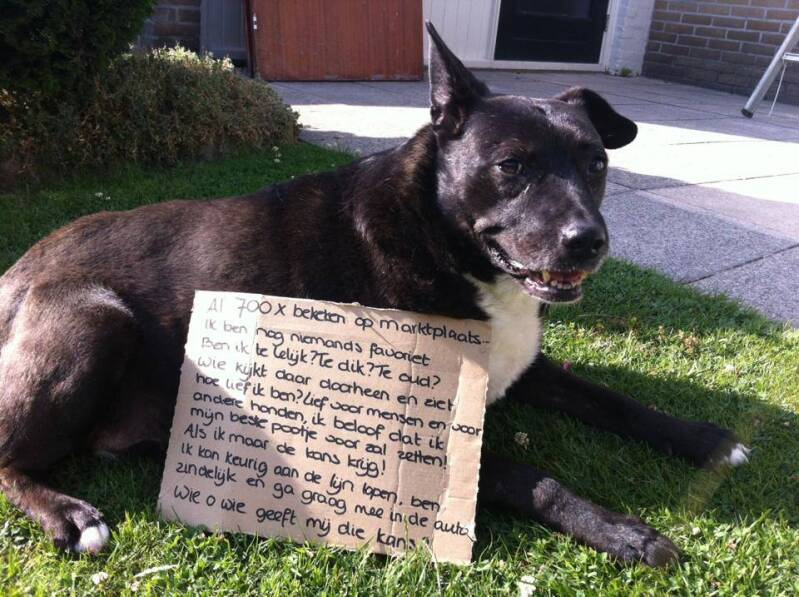 Al 700x bekeken op marktplaats...
Ik ben nog niemands favoriet
Ben ik te lelijk? Te dik? Te oud?
Wie kijkt daar doorheen en ziet
hoe lief ik ben? Lief voor mensen en voor
andere honden, ik beloof dat ik
mijn beste pootje voor zal zetten!
Als ik maar de kans krijg!
Ik kan keurig aan de lijn lopen, ben
zindelijk en ga graag mee in de auto
Wie o wie geeft mij die kans